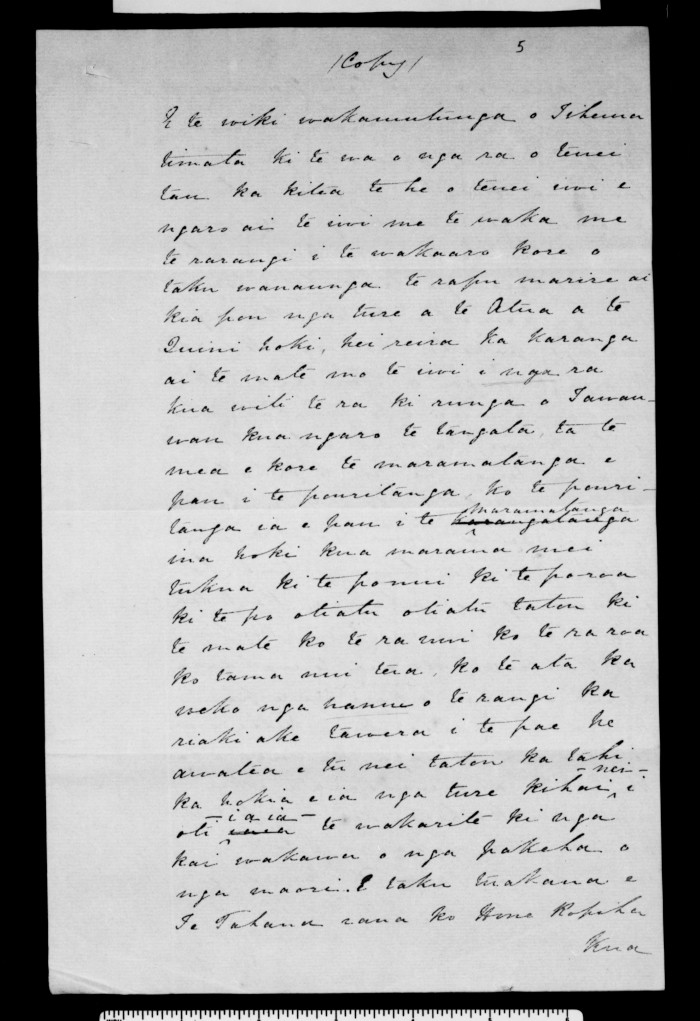 5
(Copy)
E te wiki wakamutunga o Tihema
timata ki te wa o nga ra o tenei
tau ka kitea te he o tenei iwi e
ngaro ai te iwi me te waka me
te rarangi i te wakaaro kore o
taku wanaunga te rapu marire ai
kia pou nga ture a te Atua a te
Quini hoki, hei reira ka karanga
ai te mate mo te iwi i nga ra
kua witi te ra ki runga o Tawau-
wau kua ngaro te tangata, ta te
mea e kore te maramatanga e
pau i te pouritanga, ko te pouri-
tanga ia e pau i te maramatanga
ina hoki kua marama mei
tukua ki te ponui ki te poroa
ki te po otiatu otiatu tatou ki
te mate ko te ra nui ko te ra roa
ko tama nui tera, ko te ata ka
weko nga hanne o te rangi ka
riaki ake tawera i te pae he
awatea e tu nei tatou ka tahi
ka hokia e ia nga ture kihai -nei- i
oti -ia ia- te wakarite ki nga
kai wakawa o nga pakeha o
nga maori. E taku makana e
Te Tahana rana ko Hone Ropiha
Kua